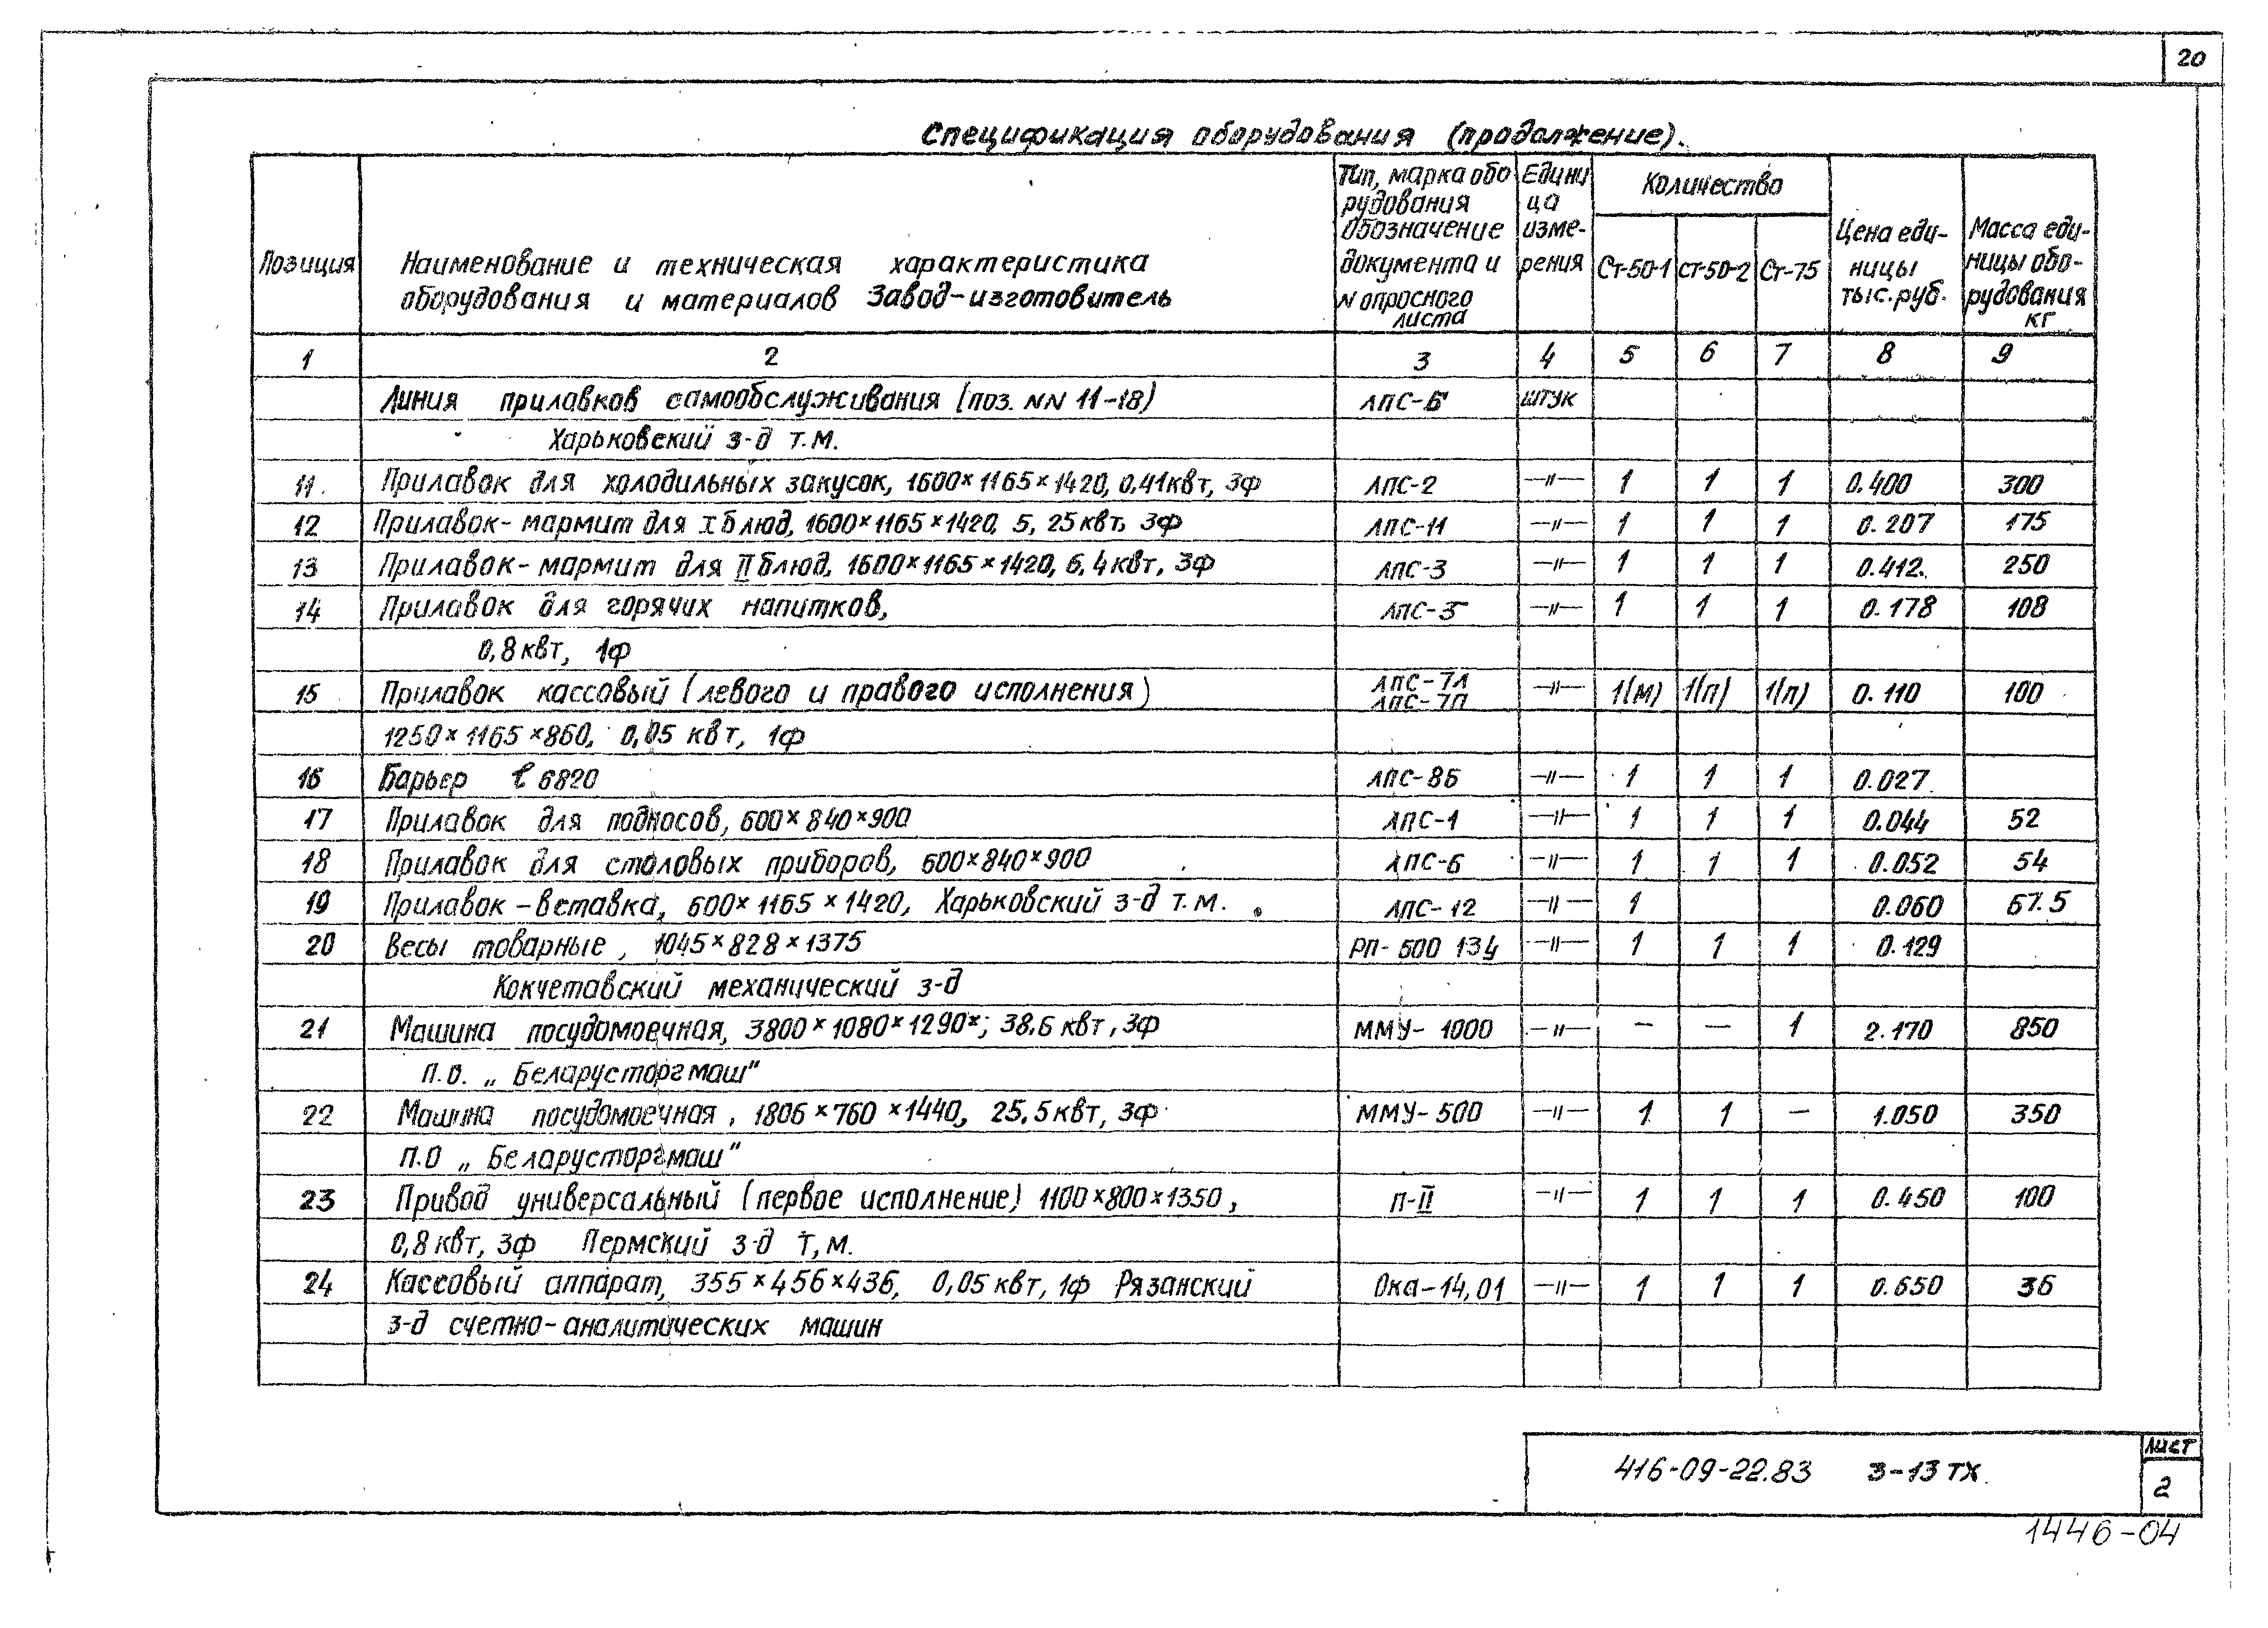 20
Спецификация оборудования (продолжение).
Позиция
Наименование и техническая характеристика
оборудования и материалов Завод-изготовитель
Тип, марка обо
рудования
Обозначение
документа и
N опросного
листа
Едини
ца
изме-
рения
Количество
Ст-50-1 Ст-50-2 Ст-75
Цена еди-
ницы
тыс. руб.
Масса еди-
ницы обо-
рудования
кг
1 2 3 4 5 6 7 8 9
Линия прилавков самообслуживания (поз. NN 11-18) АПС-Б штук
Харьковский з-д т.м.
11 Прилавок для холодильных закусок, 1600×1165×1420, 0,41квт, 3ф АПС-2 —"— 1 1 1 0.400 300
12 Прилавок-мармит для I блюд, 1600×1165×1420, 5,25квт, 3ф АПС-11 —"— 1 1 1 0.207 175
13 Прилавок-мармит для II блюд, 1600×1165×1420, 6,4квт, 3ф АПС-3 —"— 1 1 1 0.412 250
14 Прилавок для горячих напитков, АПС-5 —"— 1 1 1 0.178 108
0,8квт, 1ф
15 Прилавок кассовый (левого и правого исполнения) АПС-7Л —"— 1(м) 1(п) 1(п) 0.110 100
АПС-7П
1250×1165×860, 0,05 квт, 1ф
16 Барьер ℓ 6820 АПС-8Б —"— 1 1 1 0.027
17 Прилавок для подносов, 600×840×900 АПС-1 —"— 1 1 1 0.044 52
18 Прилавок для столовых приборов, 600×840×900 АПС-6 —"— 1 1 1 0.052 54
19 Прилавок-вставка, 600×1165×1420, Харьковский з-д т.м. АПС-12 —"— 1 0.060 67.5
20 Весы товарные, 1045×828×1375 РП-500 134 —"— 1 1 1 0.129
Кокчетавский механический з-д
21 Машина посудомоечная, 3800×1080×1290×; 38.6 квт, 3ф ММУ-1000 —"— — — 1 2.170 850
п.о. „Беларусторгмаш"
22 Машина посудомоечная, 1806×760×1440, 25,5квт, 3ф ММУ-500 —"— 1 1 — 1.050 350
п.о „Беларусторгмаш"
23 Привод универсальный (первое исполнение) 1100×800×1350, П-II —"— 1 1 1 0.450 100
0,8 квт, 3ф Пермский з-д т,м.
24 Кассовый аппарат, 355×456×436, 0,05 квт, 1ф Рязанский Ока-14,01 —"— 1 1 1 0.650 36
з-д счетно-аналитических машин
416-09-22.83 3-13 ТХ
Лист
2
1446-04